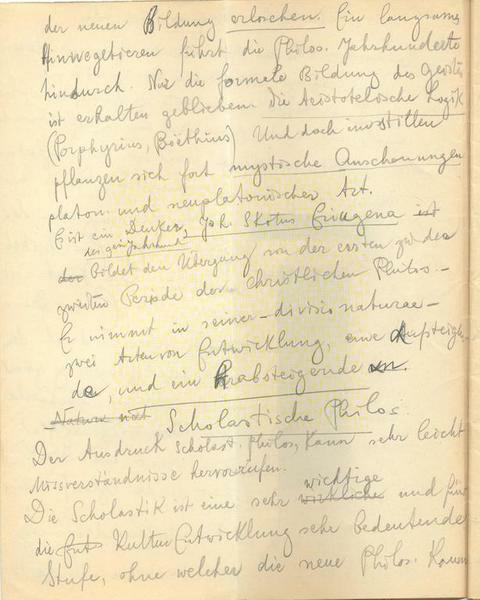 der neuen Bildung erloschen. Ein langsames
Hinwegetieren führt die Philos. Jahrhunderte
hindurch. Nur die formale Bildung des Geistes
ist erhalten geblieben: die Aristotelische Logik
(Porphyrius, Boëthius) Und doch im stillen
pflanzen sich fort mystische Anschauungen
platon. und neuplatonischer Art.
Es ist ein Denker, Joh. Skotus Eriugena ist
des Jahrhund.
der Bildet den Übergang von der ersten zu der
zweiten Periode der christlichen Philos. –
Er nimmt in seiner – divisio naturae –
zwei Arten von Entwicklung, eine Aufsteigen
de, und ein Herabsteigende an.
Scholastische Philos.
Der Ausdruck Scholast. Philos, kann sehr leicht
Missverständnisse hervorrufen.
wichtige
Die Scholastik ist eine sehr wirkliche und für
die Kultur Entwicklung sehr bedeutende
Stufe, ohne welcher die neue Philos. kaum